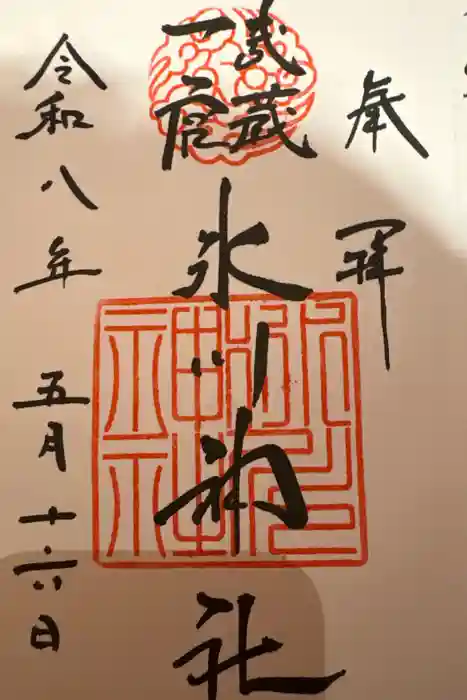 奉拜
武蔵
一宮
氷川神社
令和八年五月十六日